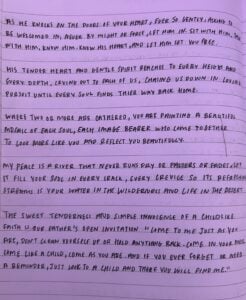 AS HE KNOCKS ON THE DOORS OF YOUR HEART, EVER SO GENTLY, ASKING TO
BE WELCOMED IN, NEVER BY MIGHT OR FORCE, LET HIM IN. SIT WITH HIM,
WITH HIM, KNOW HIM. KNOW HIS HEART, AND LET HIM SET YOU FREE.
HIS TENDER HEART AND GENTLE SPIRIT REACHES TO EVERY HEIGHT AND
EVERY DEPTH, CRYING OUT TO EACH OF US, CHASING US DOWN IN LOVING
PURSUIT UNTIL EVERY SOUL FINDS THEIR WAY BACK HOME.
WHERE TWO OR MORE ARE GATHERED, YOU ARE PAINTING A BEAUTIFUL
OF EACH SOUL, EACH IMAGE BEARER WHO COME TOGETHER
TO LOOK MORE LIKE YOU AND REFLECT YOU BEAUTIFULLY.
MY PEACE IS A RIVER THAT NEVER RUNS DRY OR FALTERS OR FADES. LET
IT FILL YOUR SOUL IN EVERY CRACK, EVERY CREVICE SO ITS
STREAMS IS YOUR WATER IN THE WILDERNESS AND LIFE IN THE DESERT.
THE SWEET TENDERNESS AND SIMPLE INNOCENCE OF A CHILDLIKE
FAITH IS OUR FATHER'S OPEN INVITATION "COME TO ME JUST AS YOU
ARE, DON'T CLEAN YOURSELF UP OR HOLD ANYTHING BACK. COME IN YOUR
COME LIKE A CHILD, COME AS YOU ARE. AND IF YOU EVER FORGET OR NEED
A REMINDER, JUST LOOK TO A CHILD AND THERE YOU WILL FIND ME."